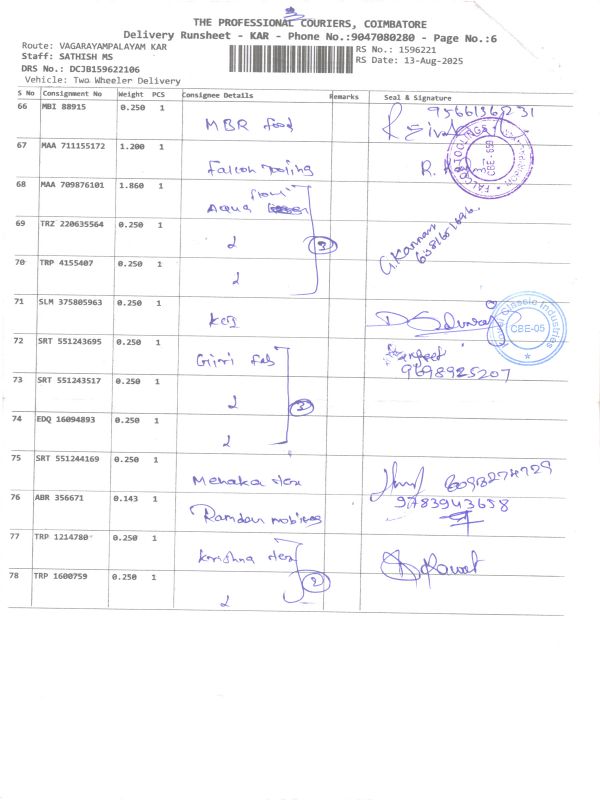 THE PROFESSIONAL COURIERS, COIMBATORE
Delivery Runsheet - KAR - Phone No.:9047080280 - Page No.:6
Route: VAGARAYAMPALAYAM KAR
RS No.: 1596221
Staff: SATHISH MS
RS Date: 13-Aug-2025
DRS No.: DCJB159622106
Vehicle: Two Wheeler Delivery
S No Consignment No Weight PCS Consignee Details Remarks Seal & Signature
66 MBI 88915 0.250 1
MBR food
67 MAA 711155172 1.200 1
Falcon Tooling
68 MAA 709876101 1.860 1
Aqua
69 TRZ 220635564 0.250 1
3
70 TRP 4155407 0.250 1
G. Kannan
71 SLM 375805963 0.250 1
Classic Industries
CBE-05
72 SRT 551243695 0.250 1
Giri Fab
9698925207
73 SRT 551243517 0.250 1
3
74 EDQ 16094893 0.250 1
75 SRT 551244169 0.250 1
Menaka
76 ABR 356671 0.143 1
9783943658
Ramdev mobiles
77 TRP 1214780 0.250 1
Krishna
78 TRP 1600759 0.250 1
2